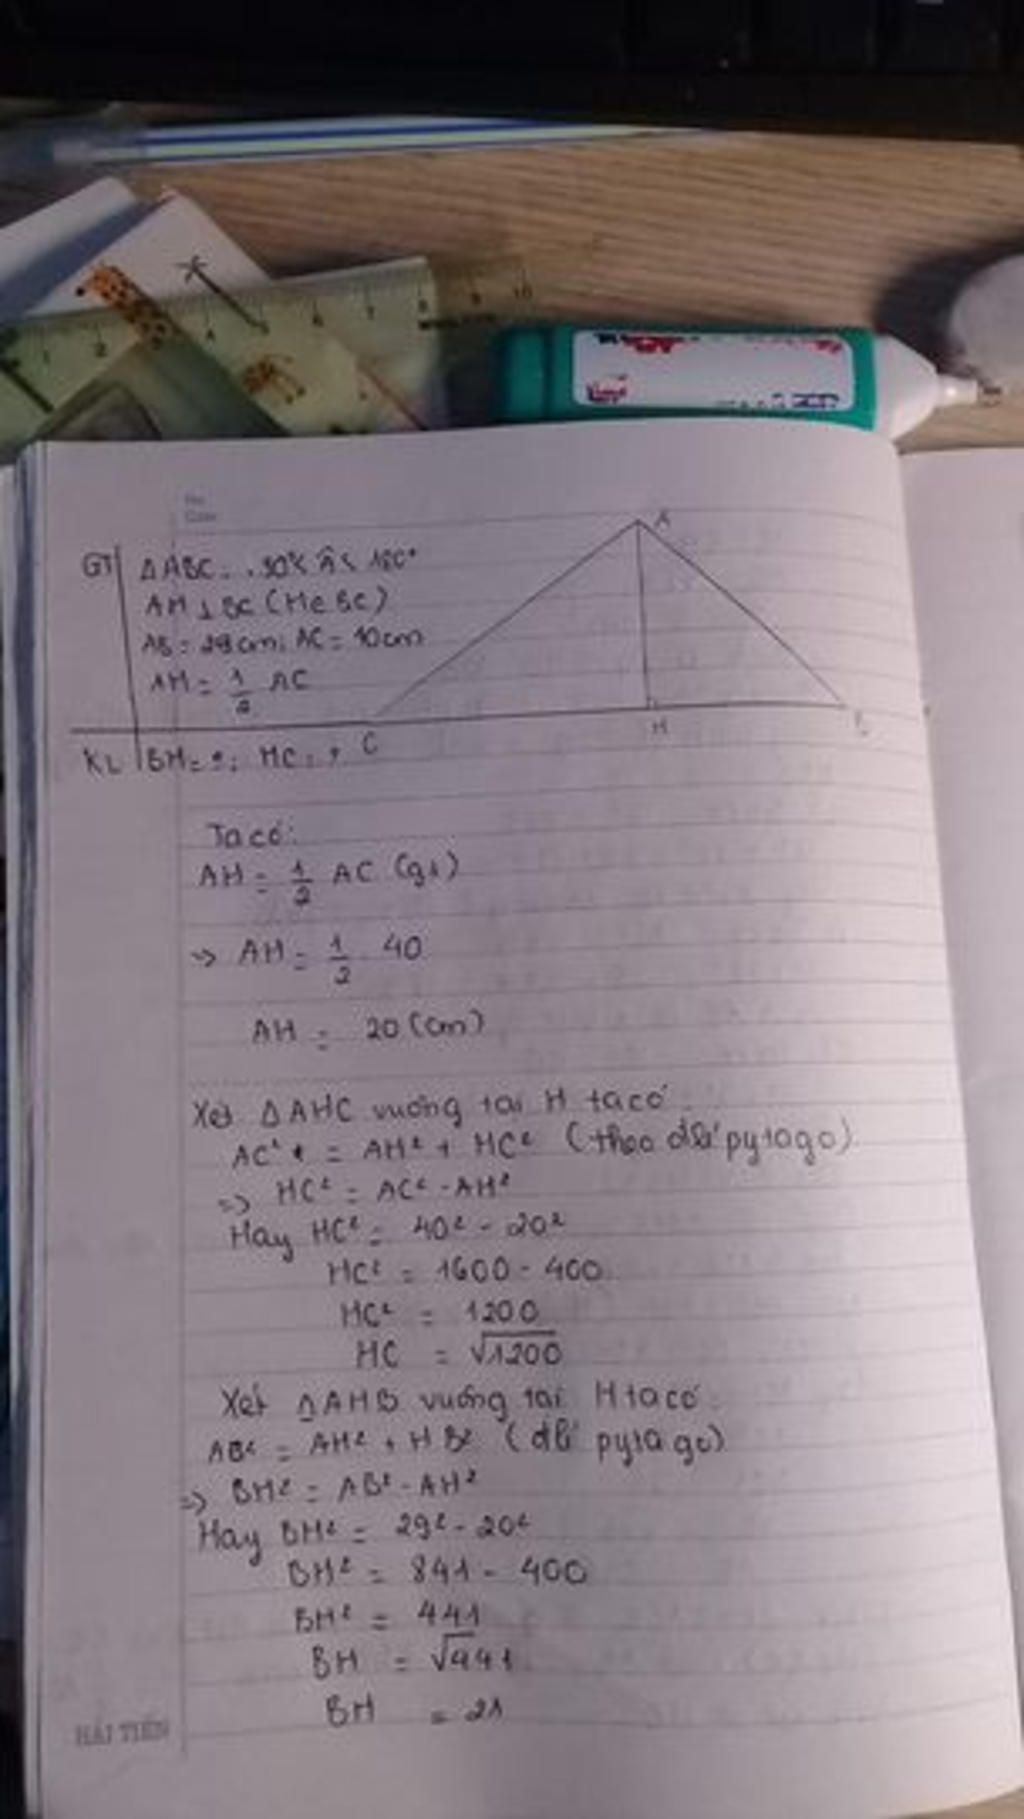 GT
ΔABC: 90°< Â < 180°
AH ⊥ BC (H ∈ BC)
AB = 29cm; AC = 40cm
AH = 1/2 AC
KL
BH = ?; HC = ?
A
C
H
Ta có:
AH = 1/2 AC (gt)
=> AH = 1/2 . 40
AH = 20 (cm)
Xét ΔAHC vuông tại H ta có:
AC² = AH² + HC² (theo đlí pytago)
=> HC² = AC² - AH²
Hay HC² = 40² - 20²
HC² = 1600 - 400
HC² = 1200
HC = √1200
Xét ΔAHB vuông tại H ta có:
AB² = AH² + HB² (đlí pytago)
=> BH² = AB² - AH²
Hay BH² = 29² - 20²
BH² = 841 - 400
BH² = 441
BH = √441
BH = 21
HẢI TIẾN
1 2 4 5 6 7 8 9 10